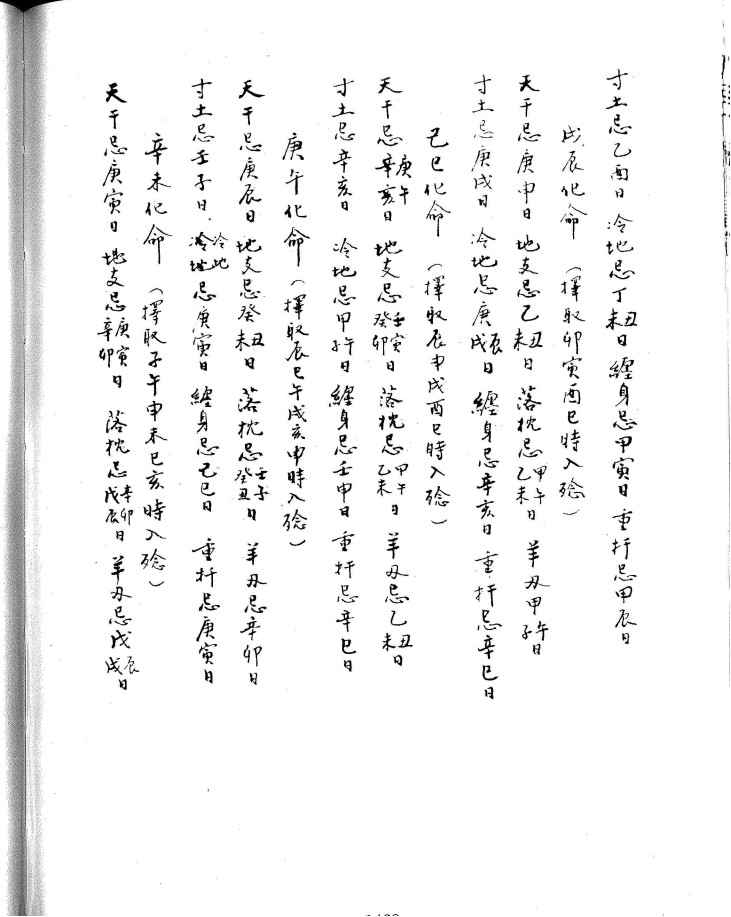 寸土忌乙酉日 冷地忌丁丑未日 纏身忌甲寅日 重扦忌甲辰日
戊辰化命 (擇取卯寅酉巳時入殮)
天干忌庚申日 地支忌乙丑未日 落枕忌甲午乙未日 羊刃甲子午日
寸土忌庚戌日 冷地忌庚辰戌日 纏身忌辛亥日 重扦忌辛巳日
己巳化命 (擇取辰申戌酉巳時入殮)
天干忌庚午辛亥日 地支忌壬寅癸卯日 落枕忌甲午乙未日 羊刃忌乙丑未日
寸土忌辛亥日 冷地忌甲子午日 纏身忌壬申日 重扦忌辛巳日
庚午化命 (擇取辰巳午戌亥申時入殮)
天干忌庚辰日 地支忌癸丑未日 落枕忌壬子癸丑日 羊刃忌辛卯日
寸土忌壬子日. 冷地冷地忌庚寅日 纏身忌己巳日 重扦忌庚寅日
辛未化命 (擇取子午申未巳亥時入殮)
天干忌庚寅日 地支忌庚寅辛卯日 落枕忌辛卯戊辰日 羊刃忌戊辰戌日